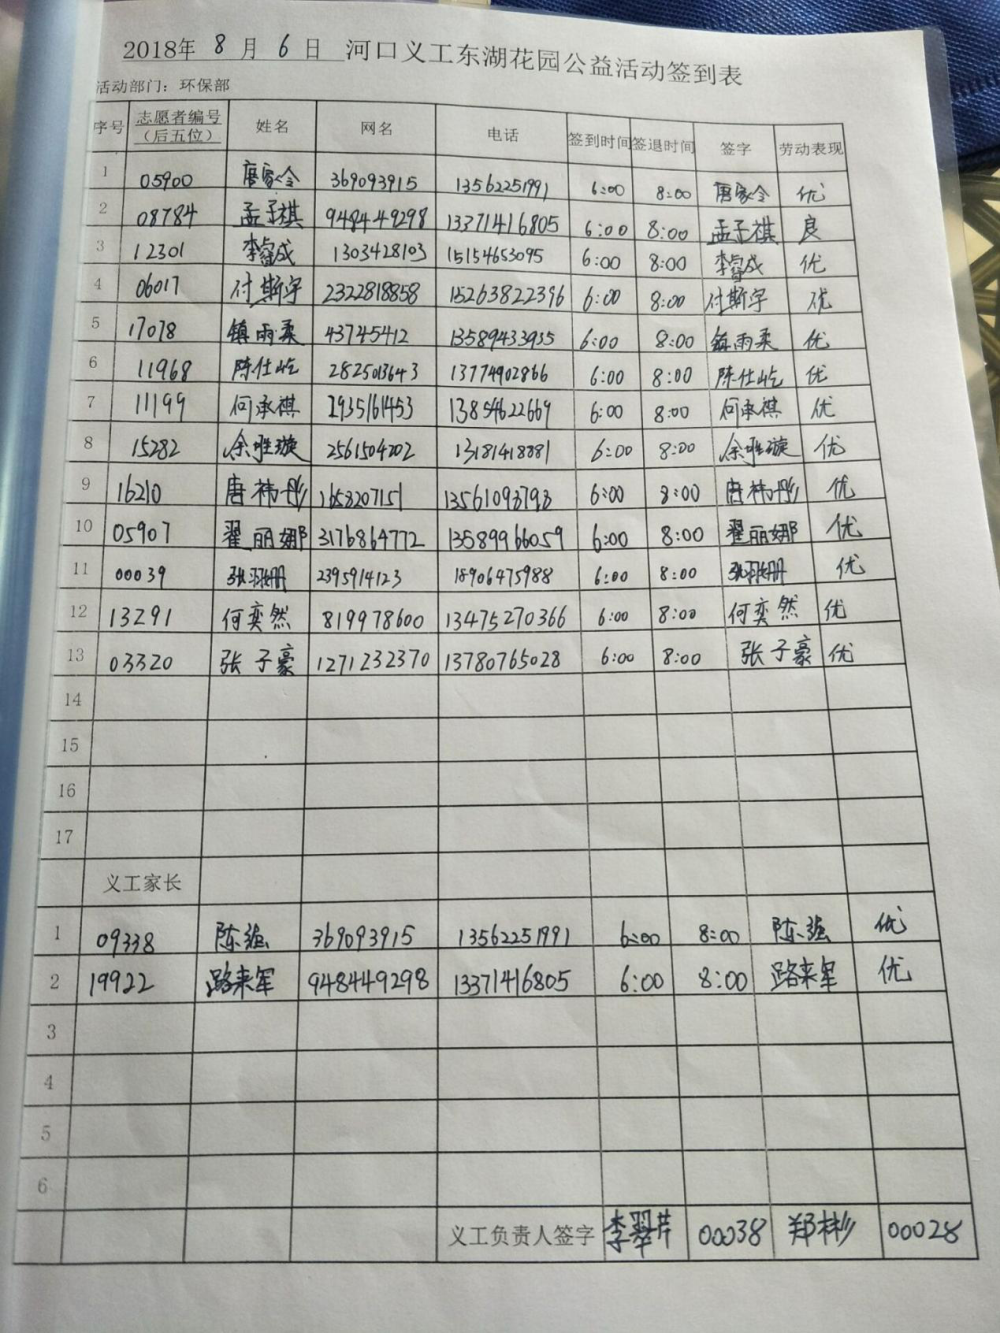 2018年 8 月 6 日 河口义工东湖花园公益活动签到表
活动部门：环保部
序号 志愿者编号（后五位） 姓名 网名 电话 签到时间 签退时间 签字 劳动表现
1 05900 唐家令 369093915 13562251991 6:00 8:00 唐家令 优
2 08784 孟子祺 948449298 13371416805 6:00 8:00 孟子祺 良
3 12301 李睿成 1303428103 15154653095 6:00 8:00 李睿成 优
4 06017 付斯宇 2322818858 15263822396 6:00 8:00 付斯宇 优
5 17078 镇雨柔 43745412 13589433955 6:00 8:00 镇雨柔 优
6 11968 陈仕屹 2825013643 13774902866 6:00 8:00 陈仕屹 优
7 11199 何承祺 2935161453 13854622669 6:00 8:00 何承祺 优
8 15282 余雅璇 2561504202 13181418881 6:00 8:00 余雅璇 优
9 16210 唐祎彤 1658207151 13561093793 6:00 8:00 唐祎彤 优
10 05907 翟丽娜 3176864772 13589966059 6:00 8:00 翟丽娜 优
11 00039 张羽珊 2395914123 18906475988 6:00 8:00 张羽珊 优
12 13291 何奕然 819978600 13475270366 6:00 8:00 何奕然 优
13 03320 张子豪 1271232370 13780765028 6:00 8:00 张子豪 优
14
15
16
17
义工家长
1 09338 陈强 369093915 13562251991 6:00 8:00 陈强 优
2 19922 路来军 948449298 13371416805 6:00 8:00 路来军 优
3
4
5
6
义工负责人签字 李翠芹 00038 郑彬 00028